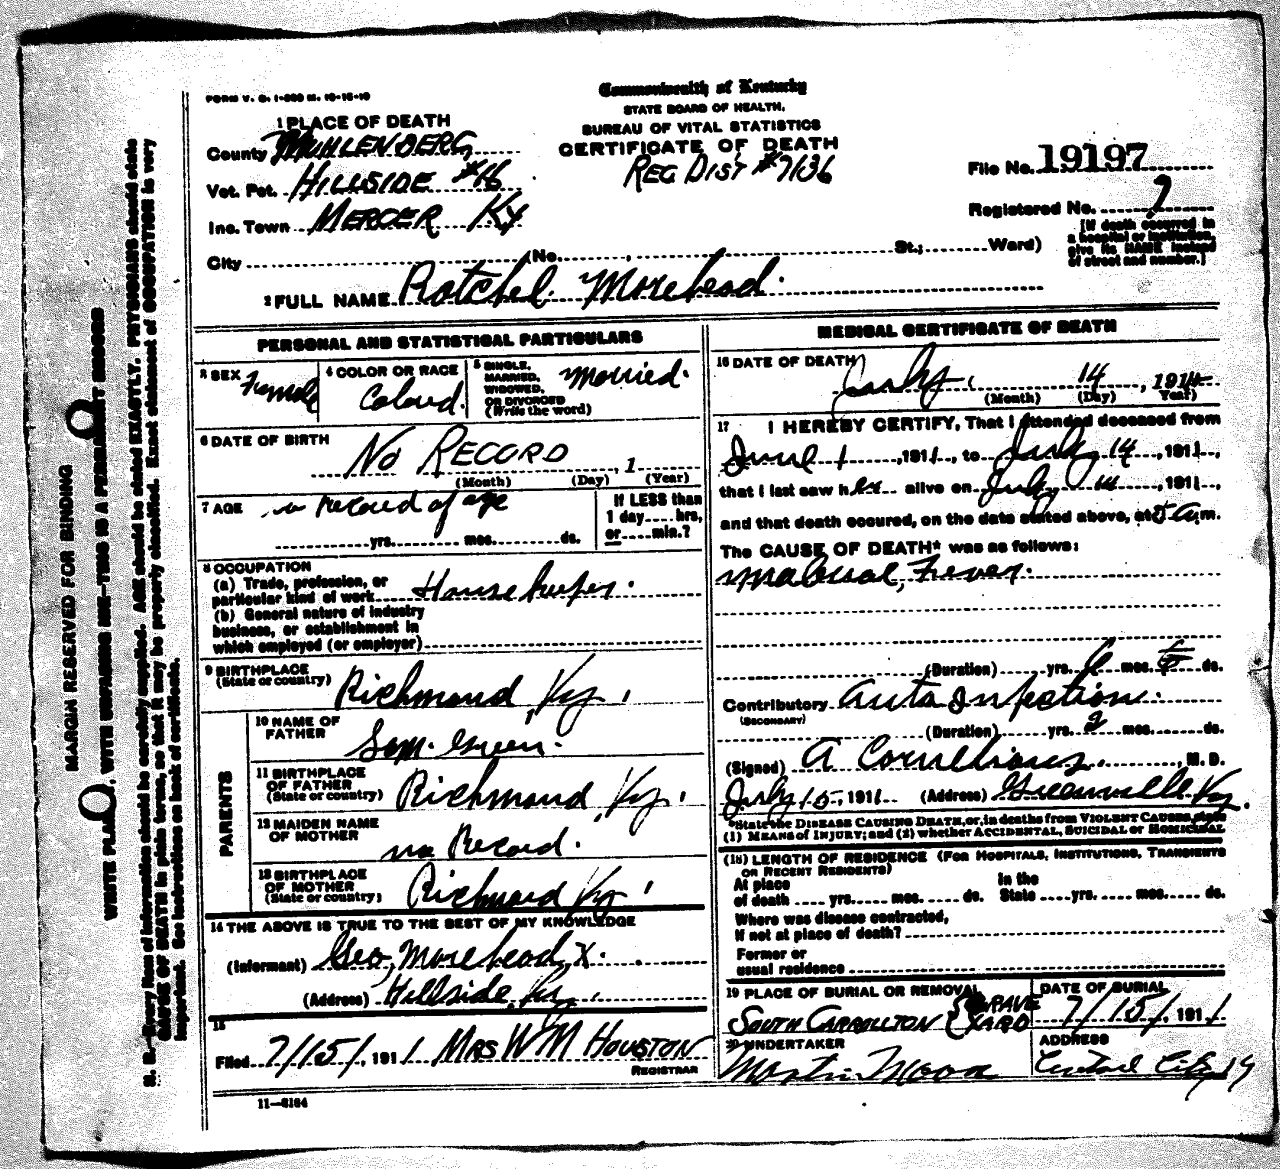 FORM V. S. 1-300 M. 10-15-10
Commonwealth of Kentucky
STATE BOARD OF HEALTH.
BUREAU OF VITAL STATISTICS
CERTIFICATE OF DEATH
REG DIST #7136
1 PLACE OF DEATH
County MUHLENBERG
Vot. Pct. HILLSIDE #16
Inc. Town MERCER KY
City No. St.; Ward)
File No. 19197
Registered No. 7
[If death occurred in
a hospital or institution,
give its NAME instead
of street and number.]
2 FULL NAME Ratchel Morehead.
PERSONAL AND STATISTICAL PARTICULARS
3 SEX Female
4 COLOR OR RACE Colored.
5 SINGLE,
MARRIED,
WIDOWED,
OR DIVORCED
(Write the word) Married.
6 DATE OF BIRTH NO RECORD , 1
(Month) (Day) (Year)
7 AGE no record of age
yrs. mos. ds.
If LESS than
1 day hrs.
or min.?
8 OCCUPATION
(a) Trade, profession, or
particular kind of work House keeper.
(b) General nature of industry
business, or establishment in
which employed (or employer)
9 BIRTHPLACE
(State or country) Richmond, Ky,
PARENTS
10 NAME OF
FATHER Sam. Green.
11 BIRTHPLACE
OF FATHER
(State or country) Richmond, Ky,
12 MAIDEN NAME
OF MOTHER no Record.
13 BIRTHPLACE
OF MOTHER
(State or country) Richmond Ky,
14 THE ABOVE IS TRUE TO THE BEST OF MY KNOWLEDGE
(Informant) Geo, Morehead, X.
(Address) Hillside, Ky,
15
Filed 7/15/, 1911 MRS WM HOUSTON
REGISTRAR
11-6164
MEDICAL CERTIFICATE OF DEATH
16 DATE OF DEATH
July, 14, 1911
(Month) (Day) Year)
17 I HEREBY CERTIFY, That I attended deceased from
June 1, 1911, to July 14, 1911,
that I last saw her alive on July 14, 1911,
and that death occured, on the date stated above, at 5 a.m.
The CAUSE OF DEATH* was as follows:
Malarial, Fever.
(Duration) yrs. 6 mos. ds.
Contributory Auto Infection.
(SECONDARY)
(Duration) yrs. 2 mos. ds.
(Signed) A Cornelious., M. D.
July 15, 1911 (Address) Greenville Ky.
*State the DISEASE CAUSING DEATH, or, in deaths from VIOLENT CAUSES, state
(1) MEANS of INJURY; and (2) whether ACCIDENTAL, SUICIDAL or HOMICIDAL
(18) LENGTH OF RESIDENCE (FOR HOSPITALS, INSTITUTIONS, TRANSIENTS
OR RECENT RESIDENTS)
At place
of death yrs. mos. ds.
In the
State yrs. mos. ds.
Where was disease contracted,
If not at place of death?
Former or
usual residence
19 PLACE OF BURIAL OR REMOVAL
SOUTH CARROLLTON { GRAVE YARD
DATE OF BURIAL
7/15/, 1911
20 UNDERTAKER
Martin Moore
ADDRESS
Central City Ky
MARGIN RESERVED FOR BINDING
WRITE PLAINLY, WITH UNFADING INK—THIS IS A PERMANENT RECORD
N. B.—Every item of information should be carefully supplied. AGE should be stated EXACTLY. PHYSICIANS should state
CAUSE OF DEATH in plain terms, so that it may be properly classified. Exact statement of OCCUPATION is very
important. See instructions on back of certificate.